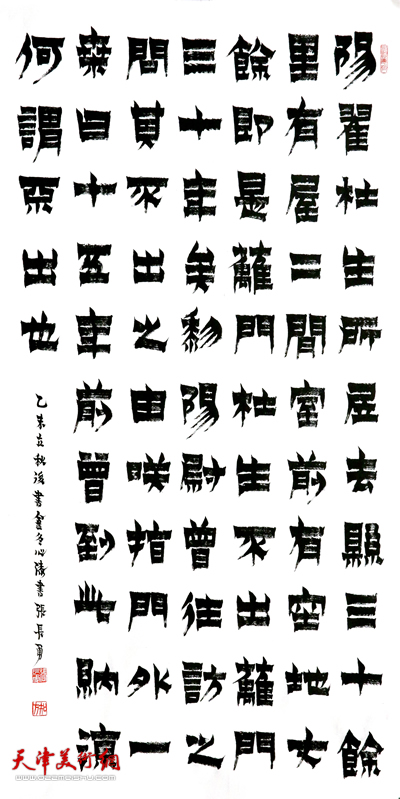 陽翟杜生所居去縣三十餘
里有屋二間室前有空地丈
餘即是蘺門杜生不出蘺門
三十年矣黎陽尉曾往訪之
問其不出之由咲指門外一
桒曰十五年前曾到此納涼
何謂不出也
乙未立秋後書金冬心漆書張長勇
天津美術網